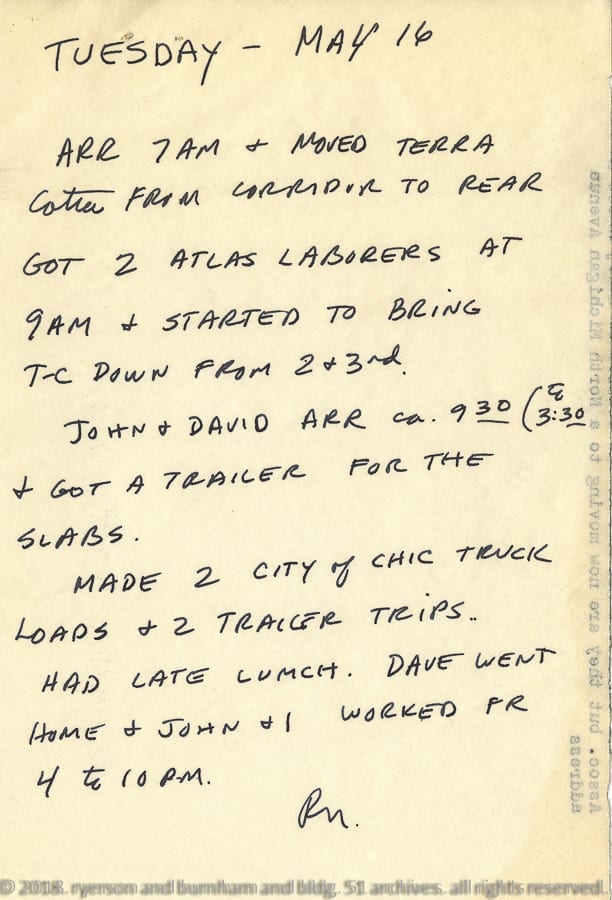 TUESDAY - MAY 16
ARR 7AM + MOVED TERRA
Cotta FROM CORRIDOR TO REAR
GOT 2 ATLAS LABORERS AT
9AM + STARTED TO BRING
T-C DOWN FROM 2 + 3rd.
JOHN + DAVID ARR ca. 9 30 (to 3:30
+ GOT A TRAILER FOR THE
SLABS.
MADE 2 CITY of CHIC TRUCK
LOADS + 2 TRAILER TRIPS..
HAD LATE LUNCH. DAVE WENT
HOME + JOHN + I WORKED FR
4 to 10 P.M.
RN.
Assoc. but they are now moving to a North Michigan Avenue
address
© 2018. ryerson and burnham and bldg. 51 archives. all rights reserved.